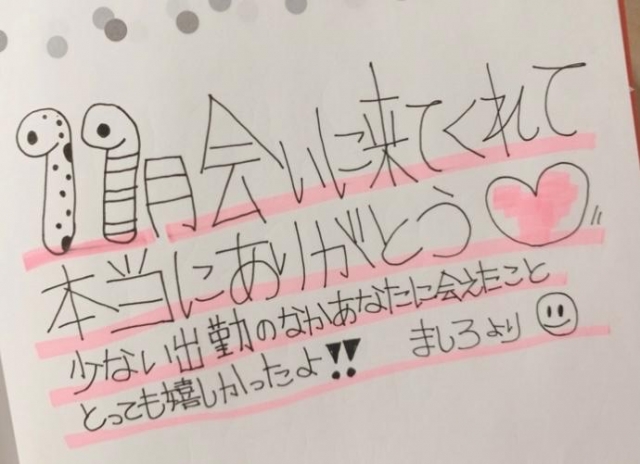 11月会いに来てくれて
本当にありがとう
少ない出勤のなかあなたに会えたこと
とっても嬉しかったよ!!
ましろより